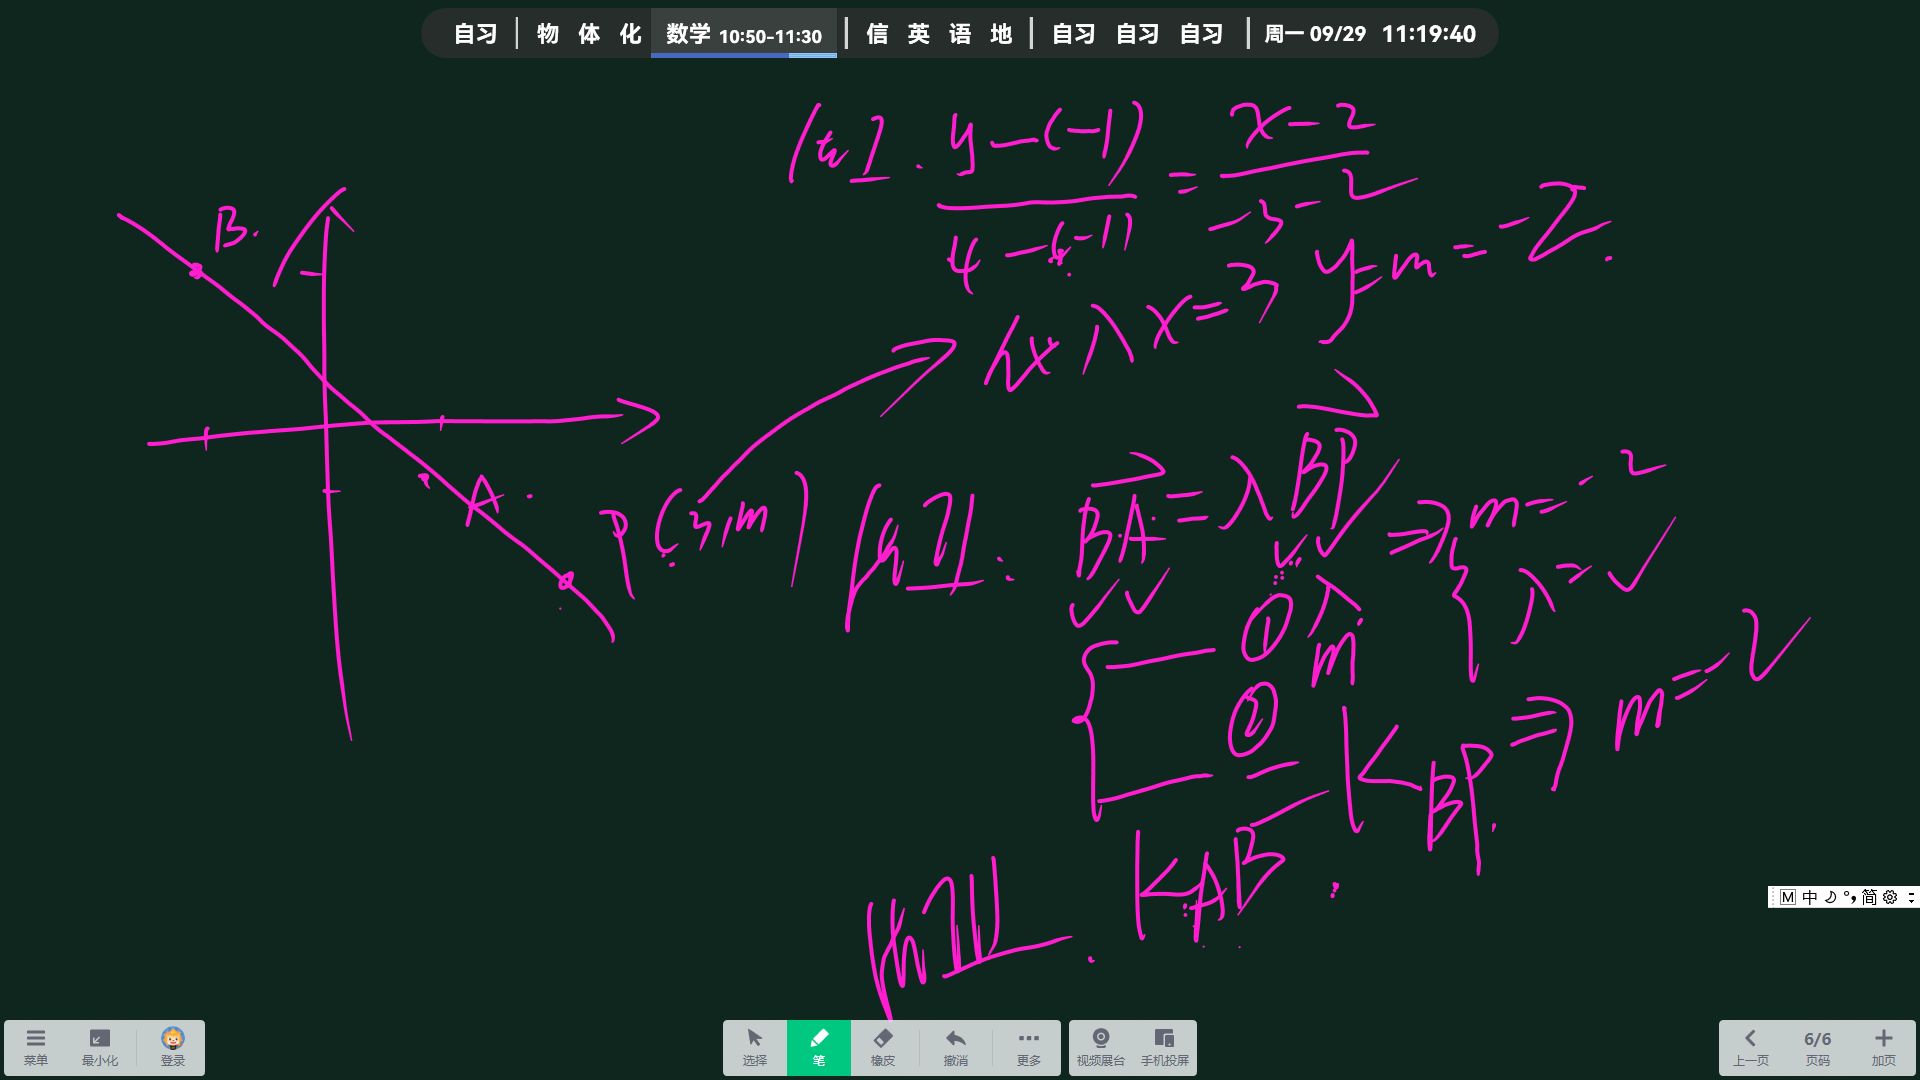 自习 | 物 体 化 数学 10:50-11:30 | 信 英 语 地 | 自习 自习 自习 | 周一 09/29 11:19:40
y-(-1) / 4-(-1) = x-2 / -3-2
代入 x=3 y=m=-2.
B.
A.
P(3,m)
BA=λBP ⇒ m=-2
λ=✓
① λ
m
②
KAB = KBP ⇒ m=-2
M 中 简
菜单 最小化 登录 选择 笔 橡皮 撤消 更多 视频展台 手机投屏 上一页 6/6 页码 加页